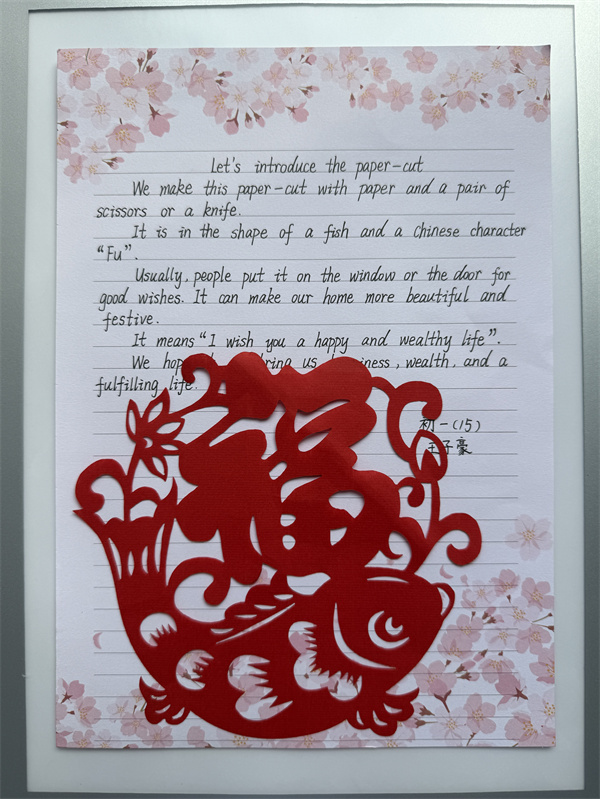 Let's introduce the paper-cut
We make this paper-cut with paper and a pair of
scissors or a knife.
It is in the shape of a fish and a Chinese character
"Fu".
Usually, people put it on the window or the door for
good wishes. It can make our home more beautiful and
festive.
It means "I wish you a happy and wealthy life".
We us, wealth, and a
fulfilling life.
初一(15)
王子豪
福